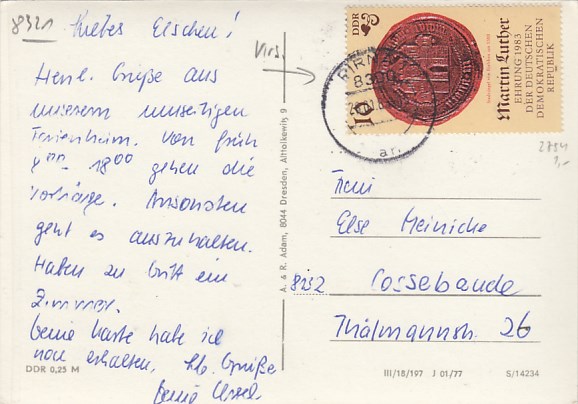 8321
Liebes Elschen!
Herzl. Grüße aus
unserem umseitigen
Ferienheim. Von früh
8⁰⁰ - 18⁰⁰ gehen die
Vorträge. Ansonsten
geht es auszuhalten.
Haben zu dritt ein
Zimmer.
Deine Karte habe ich
noch erhalten. Hb. Grüße
Deine
DDR 0,25 M
A. & R. Adam, 8044 Dresden, Altfolkewitz 9
PIRNA
8300
DDR
10
Martin Luther
EHRUNG 1983
DER DEUTSCHEN
DEMOKRATISCHEN
REPUBLIK
2754
1,-
Frau
Else Meinicke
8252 Cossebaude
Thälmannstr. 26
III/18/197 J 01/77 S/14234